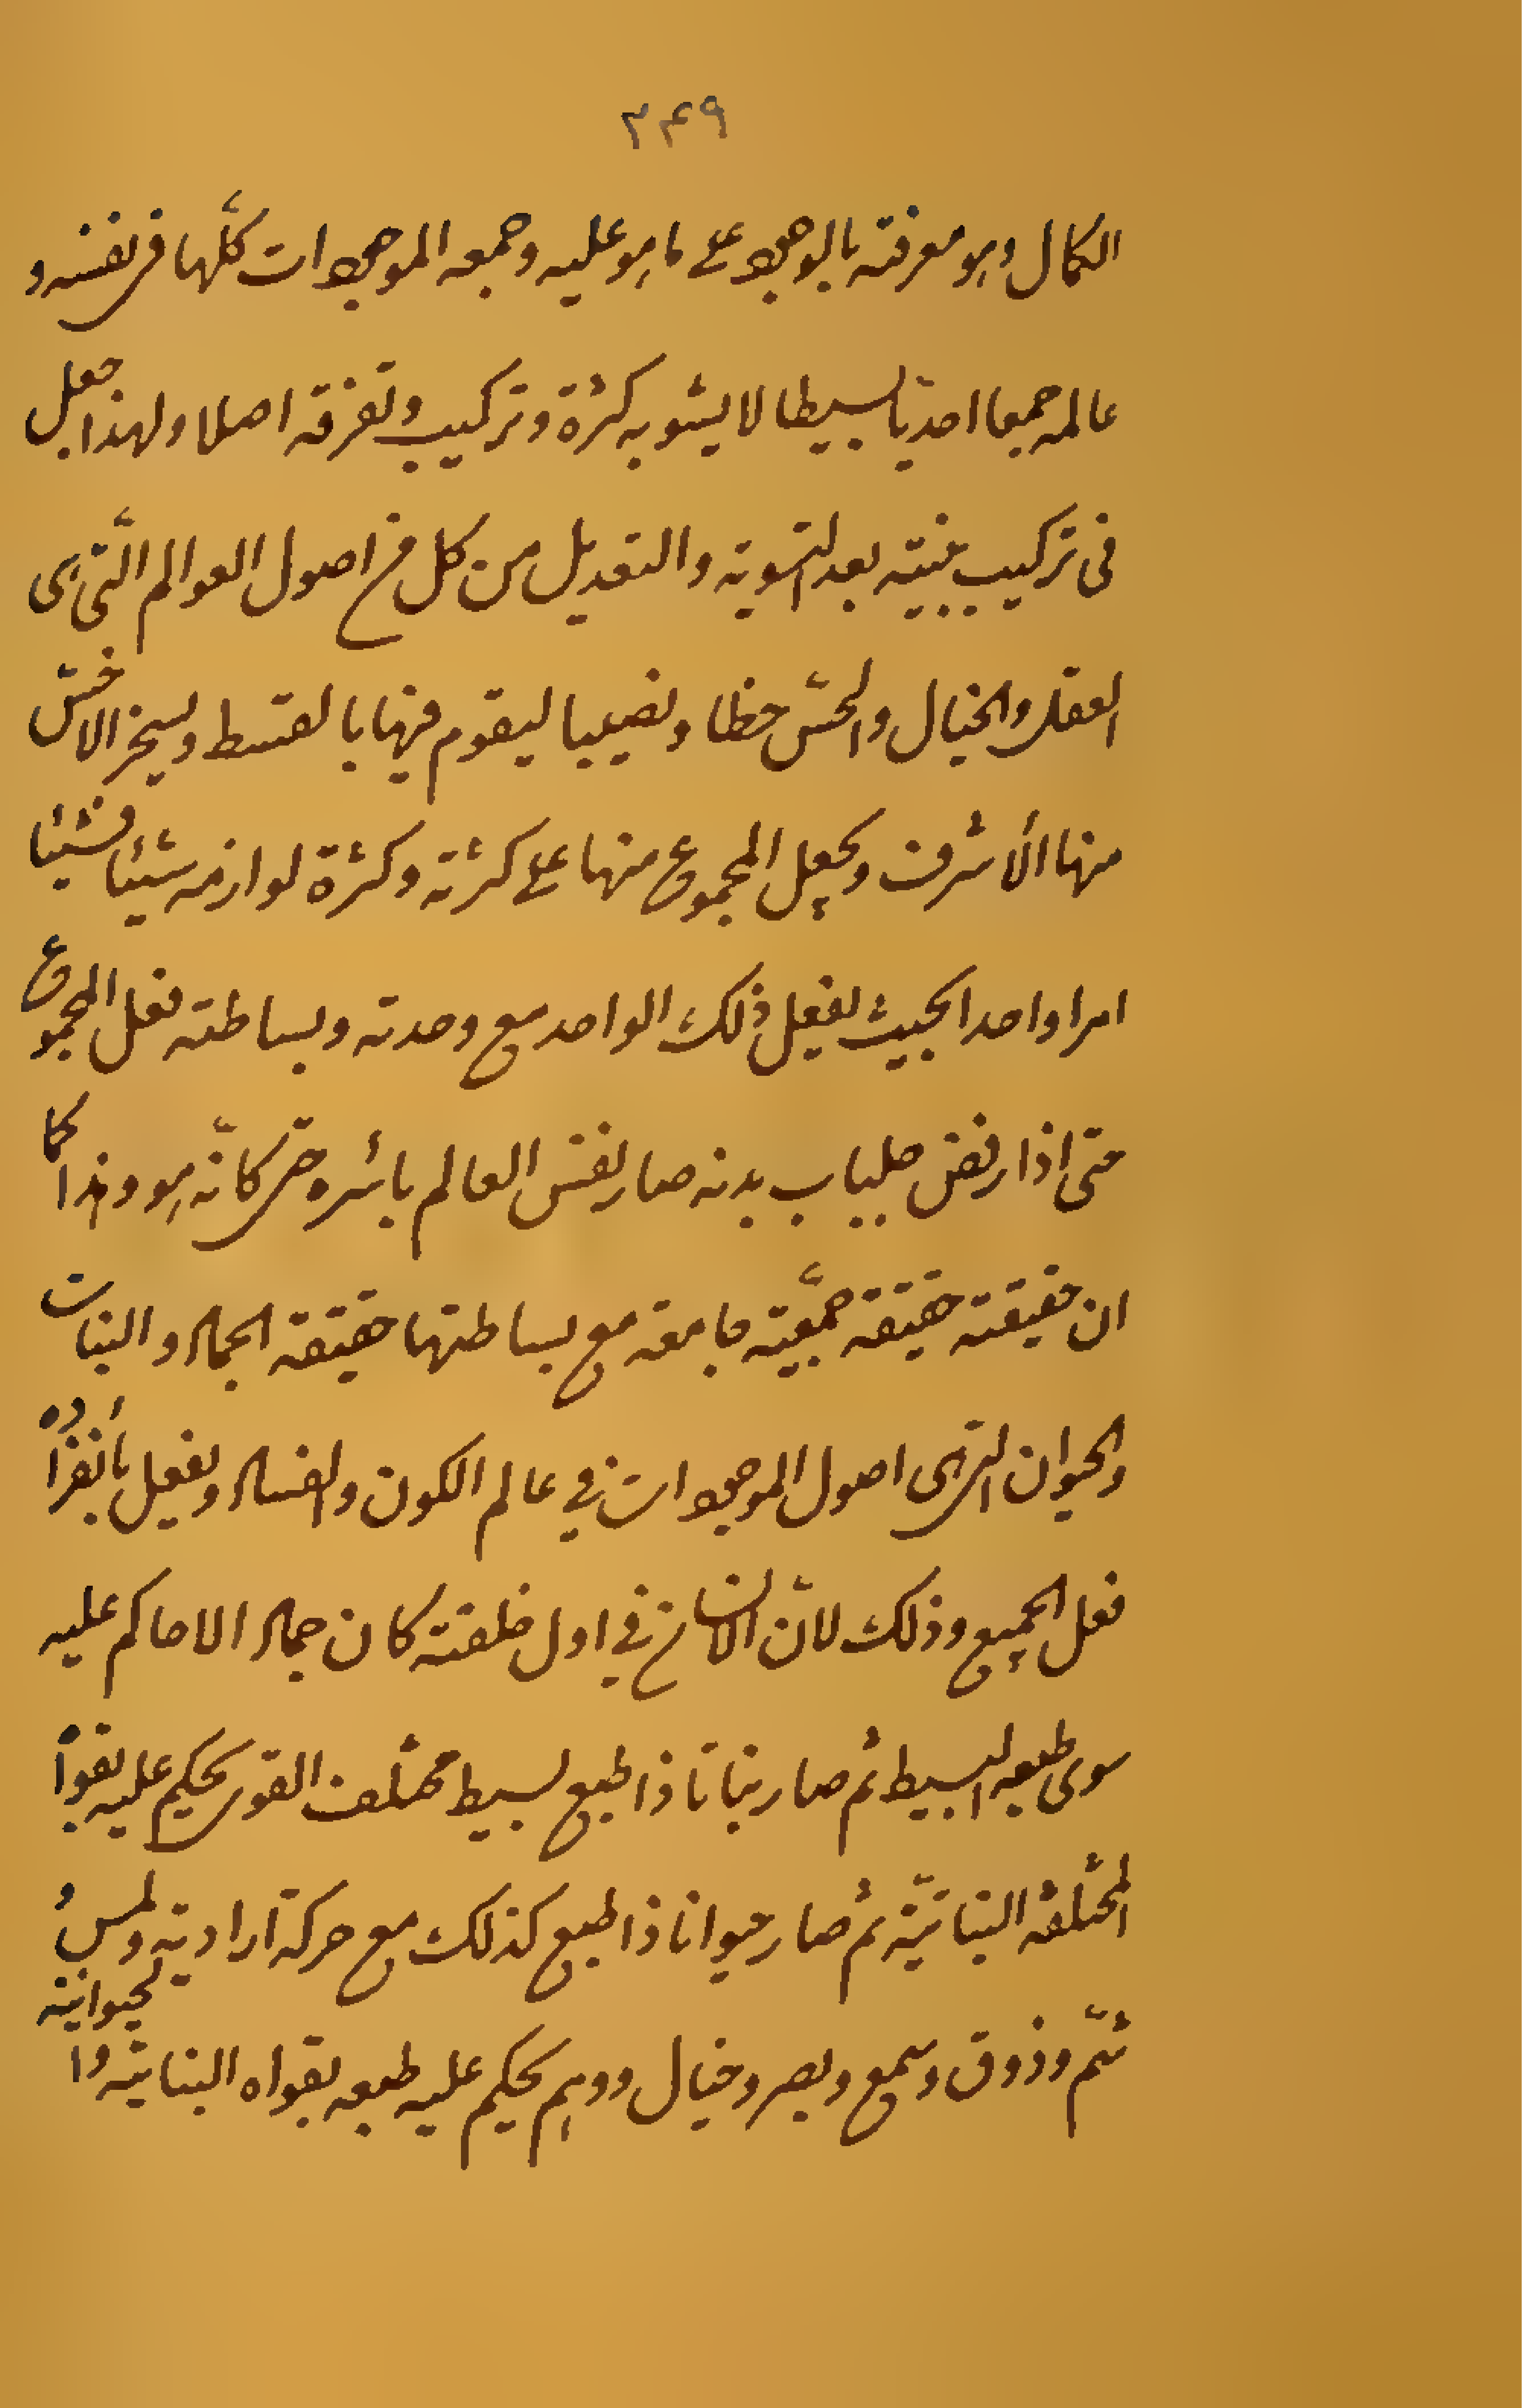 ۳۴۹
الكمال وهو معرفته بالوجود على ما هو عليه وجمعه الموجودات كلّها فى نفسه و
عالمه جمعا احديّا بسيطا لا يشوبه كثرة وتركيب وتفرقه اصلا ولهذا جعل
فى تركيب بنيته بعد التسوية والتعديل من كل من اصول العوالم الّتى هى
العقل والخيال والحسّ حظا ونصيبا ليقوم فيها بالقسط ويسخر الاخسّ
منها الأشرف ويجعل المجموع منها على كثرته وكثرة لوازمه شيئا فشيئا
امرا واحدا بحيث يفعل ذلك الواحد مع وحدته وبساطته فعل المجموع
حتى اذا رفض جلباب بدنه صار نفس العالم بأسره حتى كانّه هو وهذا كما
ان حقيقته حقيقة جمّعيّة جامعة مع بساطتها حقيقة الجماد والنبات
والحيوان التى هى اصول الموجودات فى عالم الكون والفساد ويفعل بأنفراده
فعل الجميع وذلك لانّ الانسان فى اول خلقته كان جمادا لا حاكم عليه
سوى طبعه البسيط ثم صار نباتا ذا طبع بسيط مختلف القوى يحكم عليه بقواه
المختلفة النباتيّة ثم صار حيوانا ذا طبع كذلك مع حركة ارادية ولمس و
شمّ وذوق وسمع وبصر وخيال ووهم يحكم عليه طبعه بقواه النباتية والحيوانية